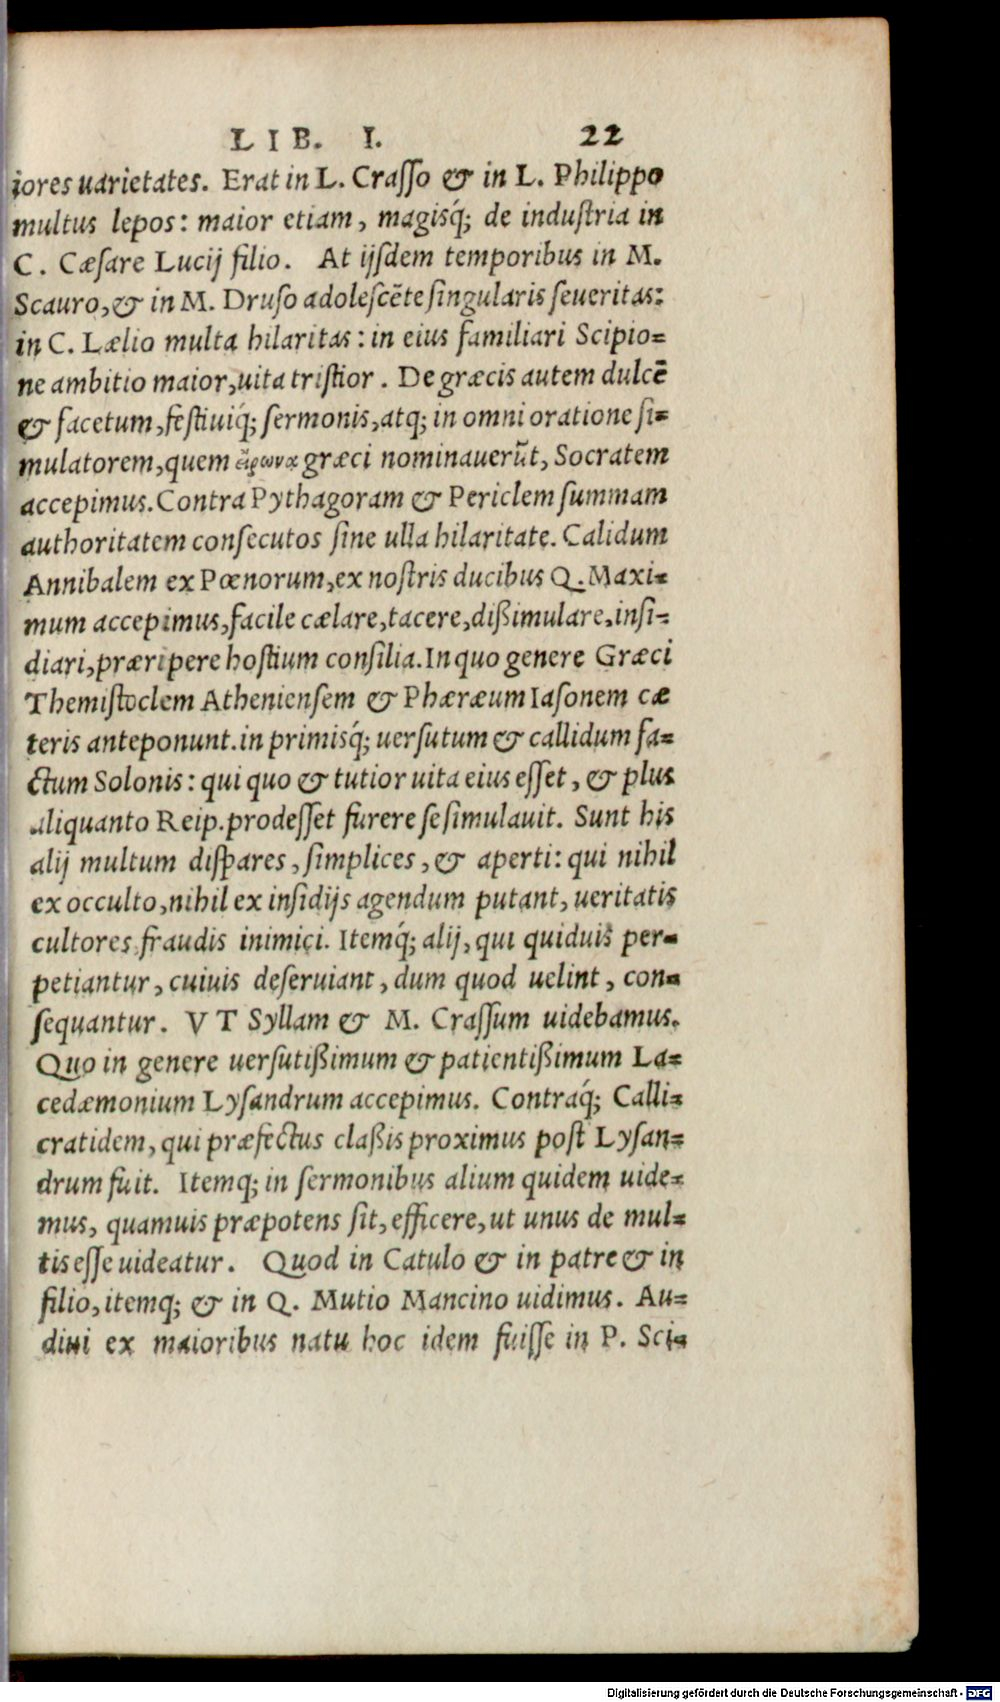 LIB. I. 22
iores uarietates. Erat in L. Crasſo & in L. Philippo
multus lepos: maior etiam, magisq́; de induſtria in
C. Cæſare Lucij filio. At ijſdem temporibus in M.
Scauro, & in M. Druſo adoleſcẽte ſingularis ſeueritas:
in C. Lælio multa hilaritas: in eius familiari Scipio=
ne ambitio maior, uita triſtior. De græcis autem dulcẽ
& facetum, feſtiuiq́; ſermonis, atq; in omni oratione ſi=
mulatorem, quem εἴρωνα græci nominauerũt, Socratem
accepimus. Contra Pythagoram & Periclem ſummam
authoritatem conſecutos ſine ulla hilaritate. Calidum
Annibalem ex Pœnorum, ex noſtris ducibus Q. Maxi=
mum accepimus, facile cælare, tacere, dißimulare, inſi=
diari, præripere hoſtium conſilia. In quo genere Græci
Themiſtoclem Athenienſem & Phæræum Iaſonem cæ
teris anteponunt. in primisq́; uerſutum & callidum fa=
ctum Solonis: qui quo & tutior uita eius eſſet, & plus
aliquanto Reip. prodeſſet furere ſe ſimulauit. Sunt his
alij multum diſpares, ſimplices, & aperti: qui nihil
ex occulto, nihil ex inſidijs agendum putant, ueritatis
cultores, fraudis inimici. Itemq́; alij, qui quiduis per=
petiantur, cuiuis deſeruiant, dum quod uelint, con=
ſequantur. VT Syllam & M. Craſſum uidebamus.
Quo in genere uerſutißimum & patientißimum La=
cedæmonium Lyſandrum accepimus. Contraq́; Calli=
cratidem, qui præfectus claßis proximus poſt Lyſan=
drum fuit. Itemq; in ſermonibus alium quidem uide=
mus, quamuis præpotens ſit, efficere, ut unus de mul=
tis eſſe uideatur. Quod in Catulo & in patre & in
filio, itemq; & in Q. Mutio Mancino uidimus. Au=
diui ex maioribus natu hoc idem fuiſſe in P. Sci=
Digitalisierung gefördert durch die Deutsche Forschungsgemeinschaft - DFG